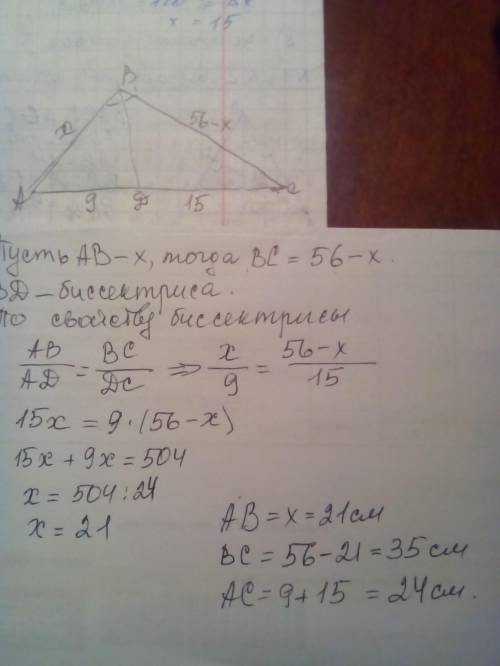 x = 15
B
x
56-x
A
9
D
15
C
Пусть AB - x, тогда BC = 56 - x.
BD - биссектриса.
По свойству биссектрисы
AB/AD = BC/DC ⇒ x/9 = 56-x/15
15x = 9·(56-x)
15x + 9x = 504
x = 504 : 24
x = 21
AB = x = 21 см
BC = 56 - 21 = 35 см
AC = 9 + 15 = 24 см.